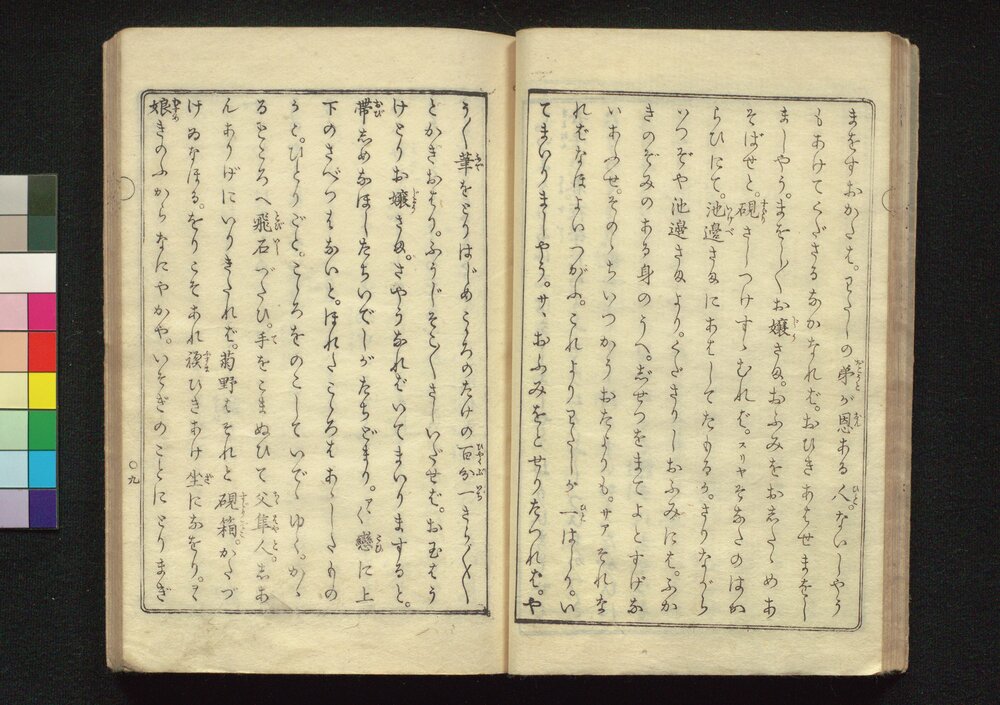 まをすおかたは。わたしの弟が恩ある人。ないしやう
もあけてくださるなかなれば。おひきあはせまをし
ましやう。まをし〱お嬢さま。おふみをおしたゝめあ
そばせと。硯さしつけすゝむれば。スリヤそなたのはか
らひにて。池邊さまにあはしてたもるか。さりながら
いつぞや池邊さまより。くださりしおふみには。ふか
きのぞみのある身のうへ。じせつをまてよとすげな
いおふせ。そのゝちいつかうおたよりも。サアそれな
ればなほよいつがふ。これよりわたしが一はしり。い
てまいりましやう。サヽおふみをとせりたつれば。や
うく筆をとりはじめこゝろのたけの百分一きら〱〱
とかきおはり。ふうじそこ〱さしいだせば。お玉はう
けとりお嬢さま。さやうなればいてまいりまするると。
帯しめなほしたちいでしがたちどまり。アヽ戀に上
下のさべつはないと。ほれたこゝろはあゝしたもの
かと。ひとりごと。こゝろをのこしていでゝゆく。かゝ
るところへ飛石づたひ。手をこまぬひて父隼人。しあ
んありげにいりきたれば。菊野はそれと硯箱。かたづ
けゐなほる。をりこそあれ襖ひきあけ坐になをり。
娘きのふからなにやかや。いそぎのことにとりまぎ
〇九